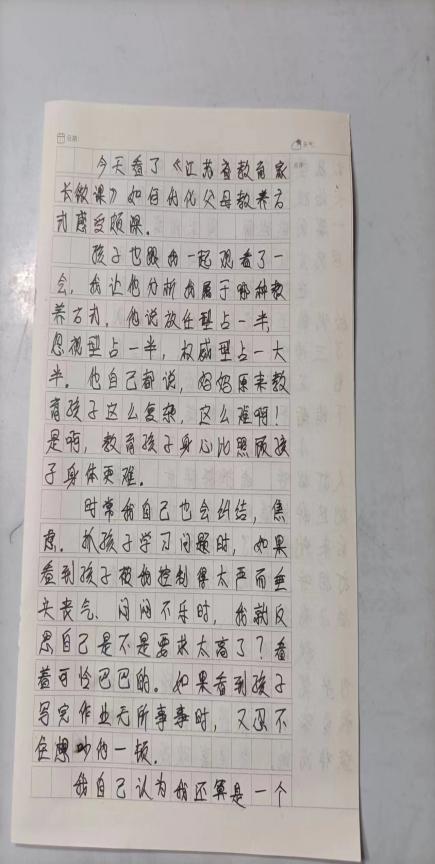 日期：
天气：
今天看了《江苏省教育家
长微课》如何优化父母教养方
式感受颇深。
孩子也跟我一起观看了一
会，我让他分析我属于哪种教
养方式，他说放任型占一半，
忽视型占一半，权威型占一大
半。他自己都说，妈妈原来教
育孩子这么复杂，这么难啊！
是啊，教育孩子身心比照顾孩
子身体更难。
时常我自己也会纠结，焦
虑。抓孩子学习问题时，如果
看到孩子被我控制得太严而垂
头丧气、闷闷不乐时，我就反
思自己是不是要求太高了？看
着可怜巴巴的。如果看到孩子
写完作业无所事事时，又忍不
住想吵他一顿。
我自己认为我还算是一个